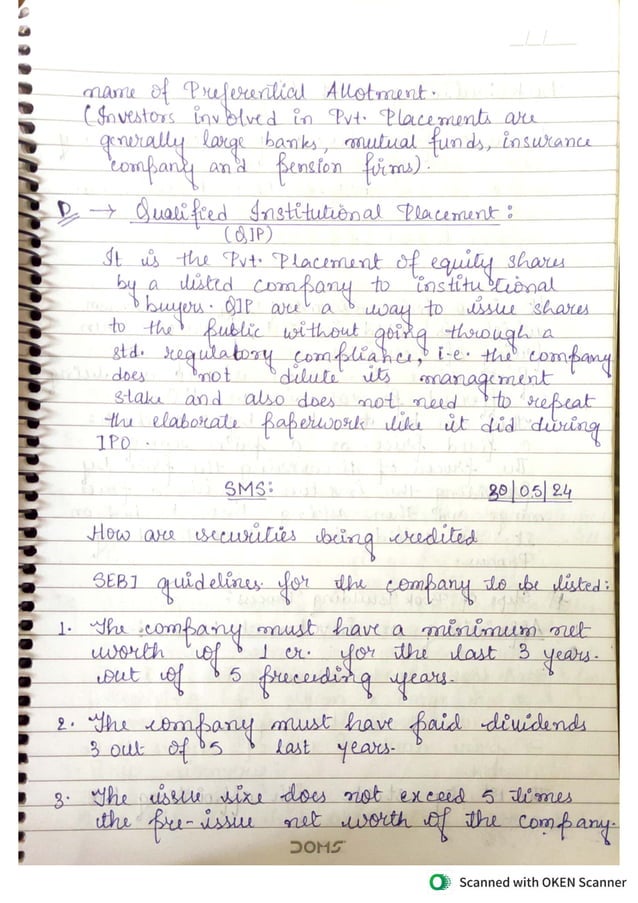 name of Preferential Allotment.
(Investors involved in Pvt. Placements are
generally large banks, mutual funds, insurance
company and pension firms).
D. → Qualified Institutional Placement:
(QIP)
It is the Pvt. Placement of equity shares
by a listed company to institutional
buyers. QIP are a way to issue shares
to the public without going through a
std. regulatory compliance, i.e. the company
does not dilute its management
stake and also does not need to repeat
the elaborate paperwork like it did during
IPO.
SMS: 30/05/24
How are securities being credited
SEBI guidelines for the company to be listed:
1. The company must have a minimum net
worth of 1 cr. for the last 3 years.
out of 5 preceding years.
2. The company must have paid dividends
3 out of 5 last years.
3. The issue size does not exceed 5 times
the pre-issue net worth of the company.
DOMS
Scanned with OKEN Scanner